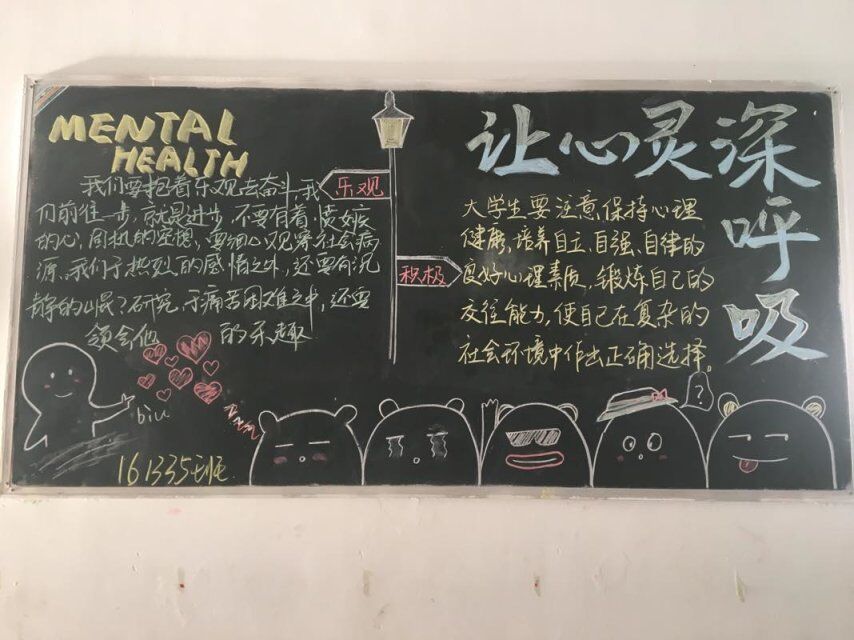 MENTAL
HEALTH
我们要抱着乐观去奋斗我
们前往一步,就是进步,不要有着嫉妒
的心,同机的空想,要细心观察社会病
源、我们于热烈的感情之外,还要有沉
静的 ?研究,于痛苦困难之中,还要
领会他 的乐趣
乐观
积极
让心灵深呼吸
大学生要注意保持心理
健康,培养自立、自强、自律的
良好心理素质,锻炼自己的
交往能力,使自己在复杂的
社会环境中作出正确选择。
biu
?
161335班